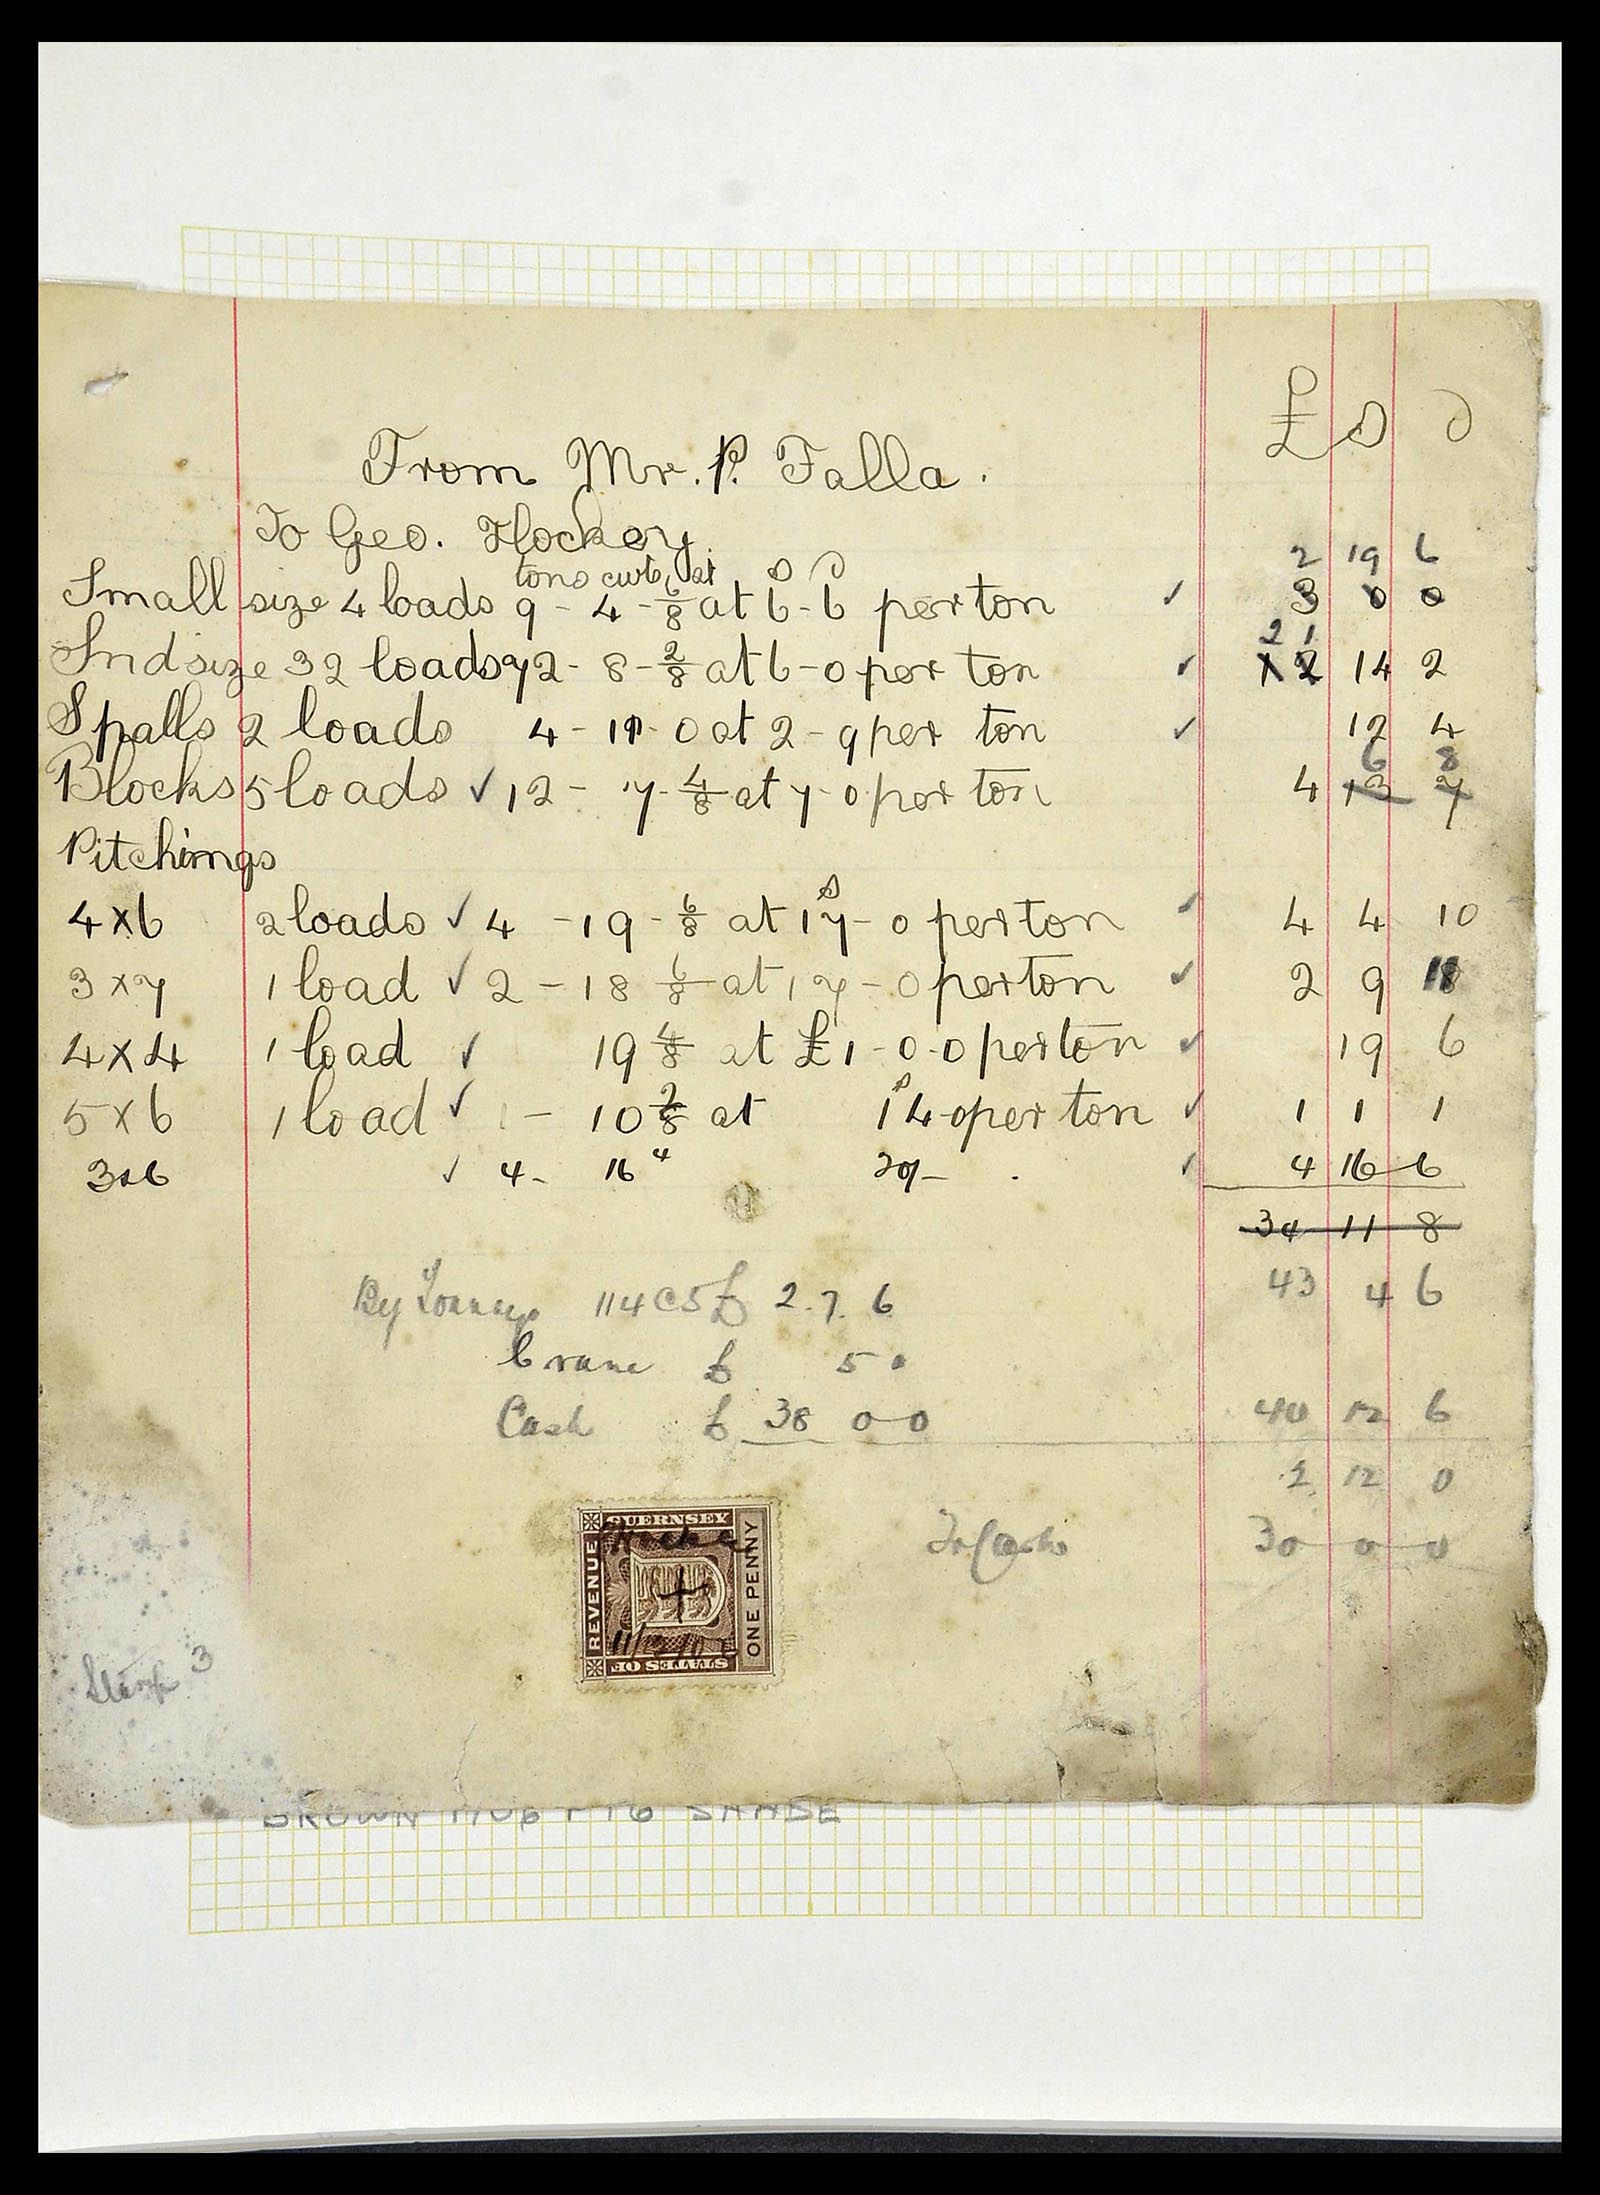 £ s d
From Mr. P. Falla.
To Geo. Hockey.
2 19 6
tons cwts at s d
Small size 4 loads 9 - 4 - 6/8 at 6 - 6 per ton ✓ 3 0 0
2 1
2nd size 32 loads 72 - 8 - 2/8 at 6 - 0 per ton ✓ 12 14 2
Spalls 2 loads 4 - 11 - 0 at 2 - 9 per ton ✓ 12 4
6 8
Blocks 5 loads ✓ 12 - 7 - 4/8 at 7 - 0 per ton 4 13 7
Pitchings
4 x 6 2 loads ✓ 4 - 19 - 6/8 at 17 - 0 per ton ✓ 4 4 10
3 x 7 1 load ✓ 2 - 18 6/8 at 17 - 0 per ton ✓ 2 9 11
4 x 4 1 load ✓ 19 4/8 at £1 - 0 - 0 per ton ✓ 19 6
5 x 6 1 load ✓ 1 - 10 2/8 at 14 - 0 per ton ✓ 1 1 1
3x6 ✓ 4 - 16 4 20/- ✓ 4 16 6
34 11 8
43 4 6
By 114 C 5 £ 2. 7. 6
Crane £ 5 0
Cash £ 38 0 0 40 12 6
2 12 0
To Cash 30 0 0
GUERNSEY
REVENUE
ONE PENNY
STATES OF
Stamp 3
BROWN
SHADE